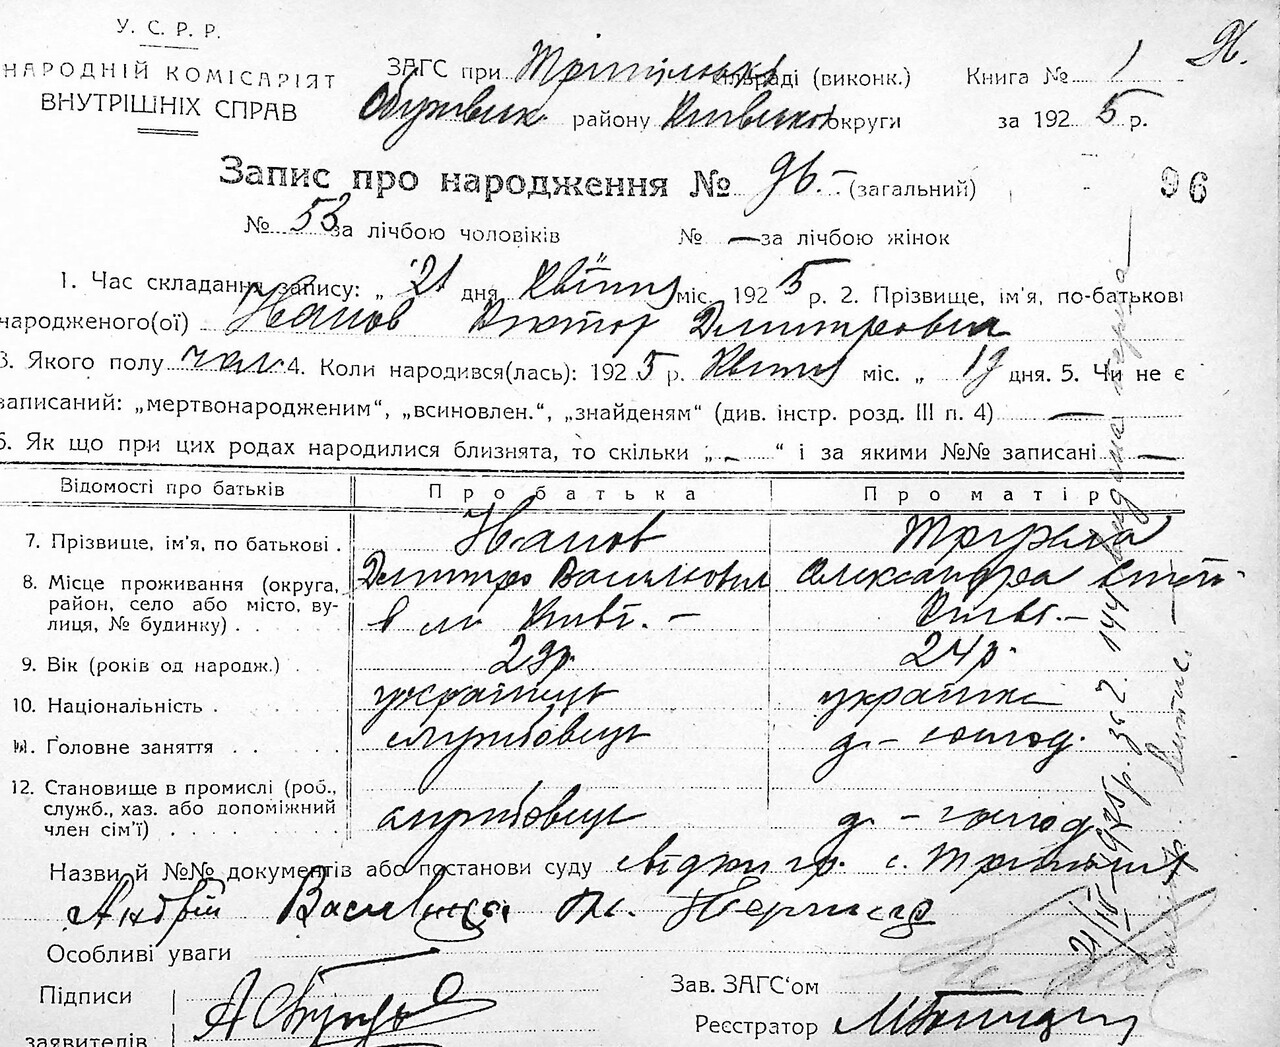 У. С. Р. Р.
НАРОДНІЙ КОМІСАРІЯТ
ВНУТРІШНІХ СПРАВ
ЗАГС при Трипільськ сільраді (виконк.)
Обухівськ району Київської округи
Книга № 1
за 1925 р.
Запис про народження № 96.- (загальний)
96
№ 53 за лічбою чоловіків № — за лічбою жінок
1. Час складання запису: „ 21 дня Квітня міс. 1925 р. 2. Прізвище, ім'я, по-батькові
народженого(ої) Іванов Віктор Дмитрович
3. Якого полу чол. 4. Коли народився(лась): 1925 р. Квітня міс. „ 19 дня. 5. Чи не є
записаний: „мертвонародженим“, „всиновлен.“, „знайденям“ (див. інстр. розд. III п. 4) —
6. Як що при цих родах народилися близнята, то скільки „ – “ і за якими №№ записані —
Відомості про батьків Про батька Про матір
7. Прізвище, ім'я, по батькові . Іванов
8. Місце проживання (округа, Дмитро Василович Олександра
район, село або місто, ву- в м. Київі. – Київі. –
лиця, № будинку) . . . . .
9. Вік (років од народж.) . 29р. 24р.
10. Національність . українець українка
11. Головне заняття . . . . службовець д – господ.
12. Становище в промислі (роб.,
служб., хаз. або допоміжний службовець д – господ
член сім'ї) . . . . . . .
Назви й №№ документів або постанови суду свідки гр. с. Трипілля
Андрій
Особливі уваги —
Підписи
заявителів
Зав. ЗАГС'ом
Реєстратор
21/IV 925р. за № 144 видана